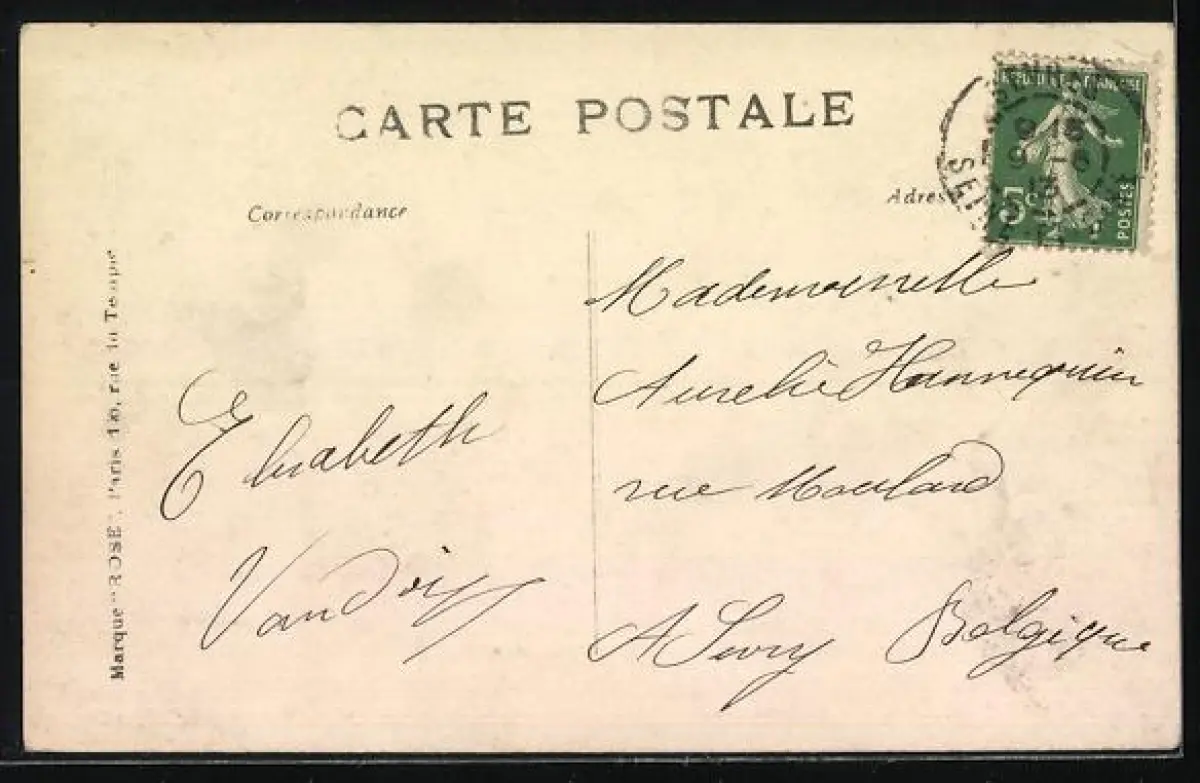 CARTE POSTALE
Correspondance
Adres
RÉPUBLIQUE FRANÇAISE
5c
POSTES
SEINE
Marque "ROSE", Paris, rue du Temple
Elisabeth
Mademoiselle
Aurelie Hannequin
rue Moulard
A Sivry Belgique